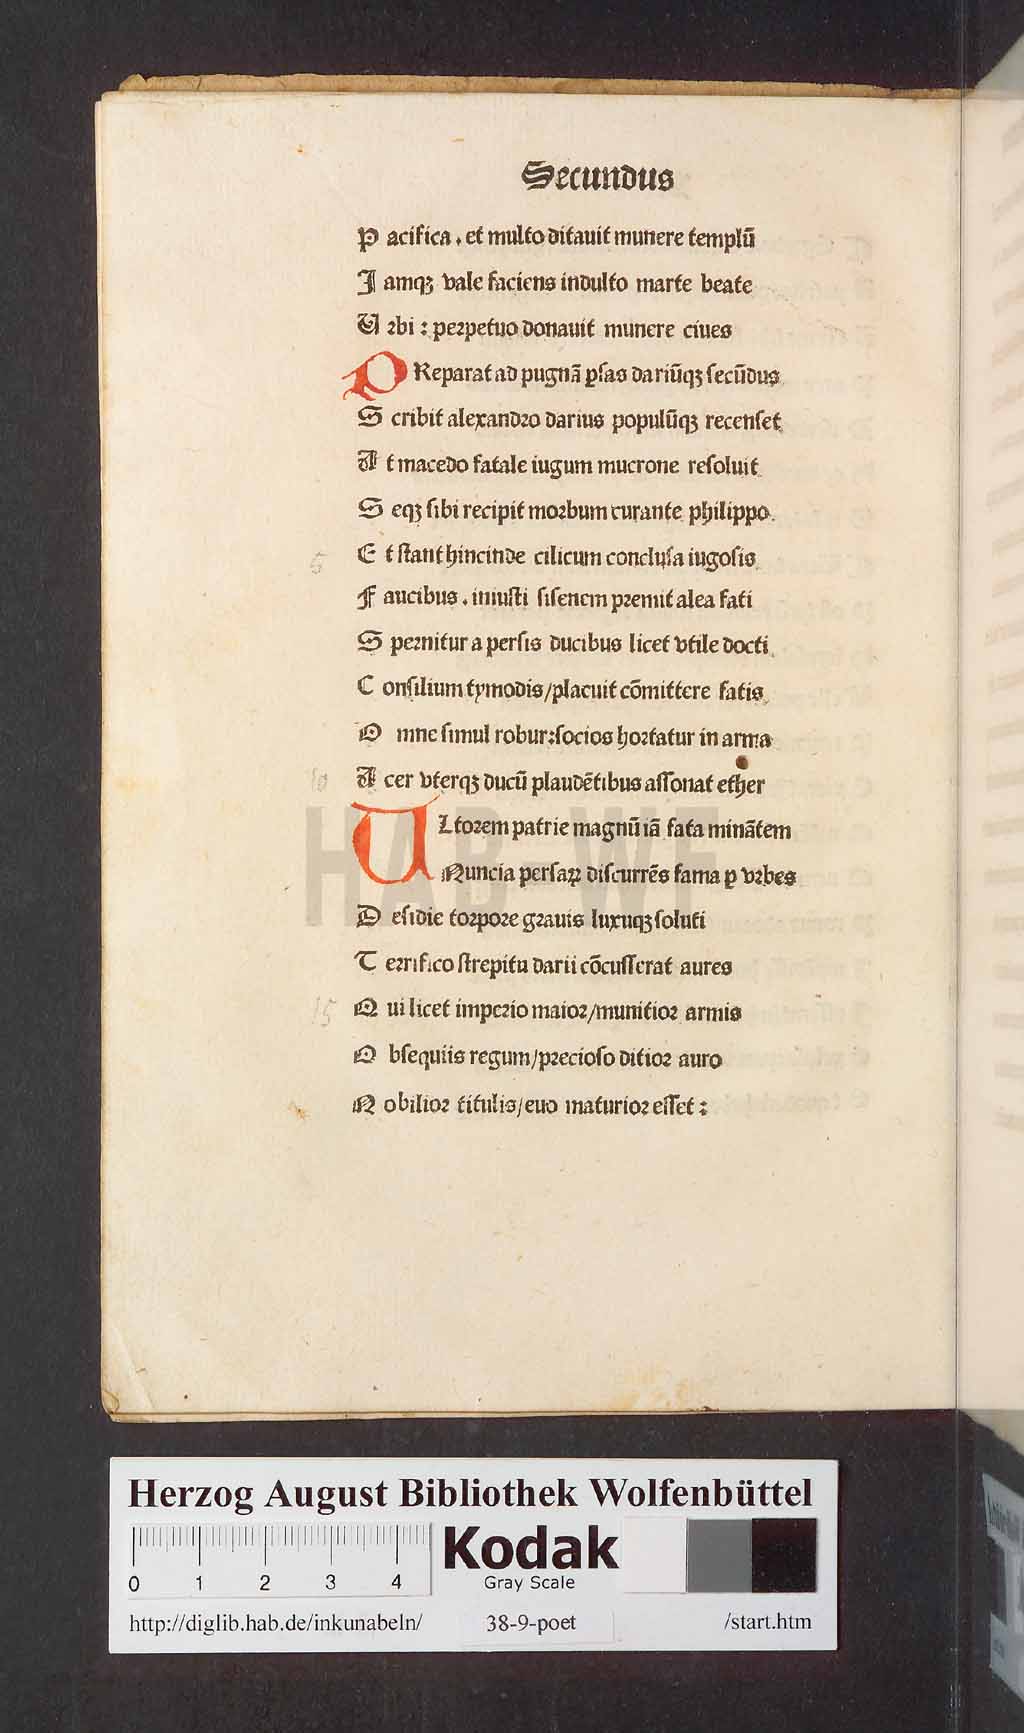 Secundus
P acifica . et multo ditauit munere templū
I amqꝫ vale faciens indulto marte beate
U rbi : perpetuo donauit munere ciues
PReparat ad pugnā ꝑsas dariūqꝫ secūdus
S cribit alexandro darius populūqꝫ recenset
A t macedo fatale iugum mucrone resoluit
S eqꝫ sibi recipit morbum curante philippo.
5 E t stant hincinde cilicum conclusa iugosis
F aucibus . iniusti sisenem premit alea fati
S pernitur a persis ducibus licet vtile docti
C onsilium tymodis/placuit cōmittere fatis
O mne simul robur:socios hortatur in arma
10 A cer vterqꝫ ducū plaudētibus assonat ether
ULtorem patrie magnū iā fata minātem
Nuncia persaꝝ discurrēs fama ꝑ vrbes
D esidie torpore grauis luxuqꝫ soluti
T errifico strepitu darii cōcusserat aures
15 Q ui licet imperio maior/munitior armis
O bsequiis regum/precioso ditior auro
N obilior titulis/euo maturior esset :
HAB-WF
Herzog August Bibliothek Wolfenbüttel
0 1 2 3 4
Kodak
Gray Scale
http://diglib.hab.de/inkunabeln/ 38-9-poet /start.htm